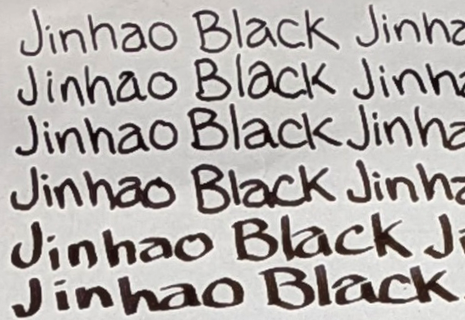 Jinhao Black Jinha
Jinhao Black Jinh
Jinhao Black Jinha
Jinhao Black Jinha
Jinhao Black Ji
Jinhao Black